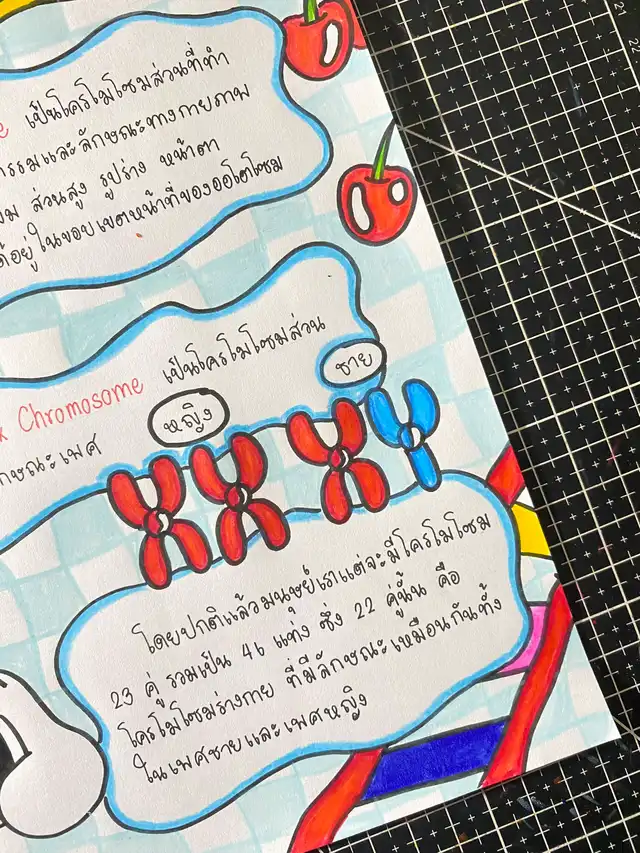 เป็นโครโมโซมส่วนที่ทำ
กรรมและลักษณะทางกายภาพ
ส่วนสูง รูปร่าง หน้าตา
อยู่ในขอบเขตหน้าที่ของออโตโซม
Chromosome เป็นโครโมโซมส่วน
ลักษณะเพศ
หญิง
ชาย
โดยปกติแล้วมนุษย์เราแต่จะมีโครโมโซม
23 คู่ รวมเป็น 46 แท่ง ซึ่ง 22 คู่นั้น คือ
โครโมโซมร่างกาย ที่มีลักษณะเหมือนกันทั้ง
ในเพศชายและเพศหญิง